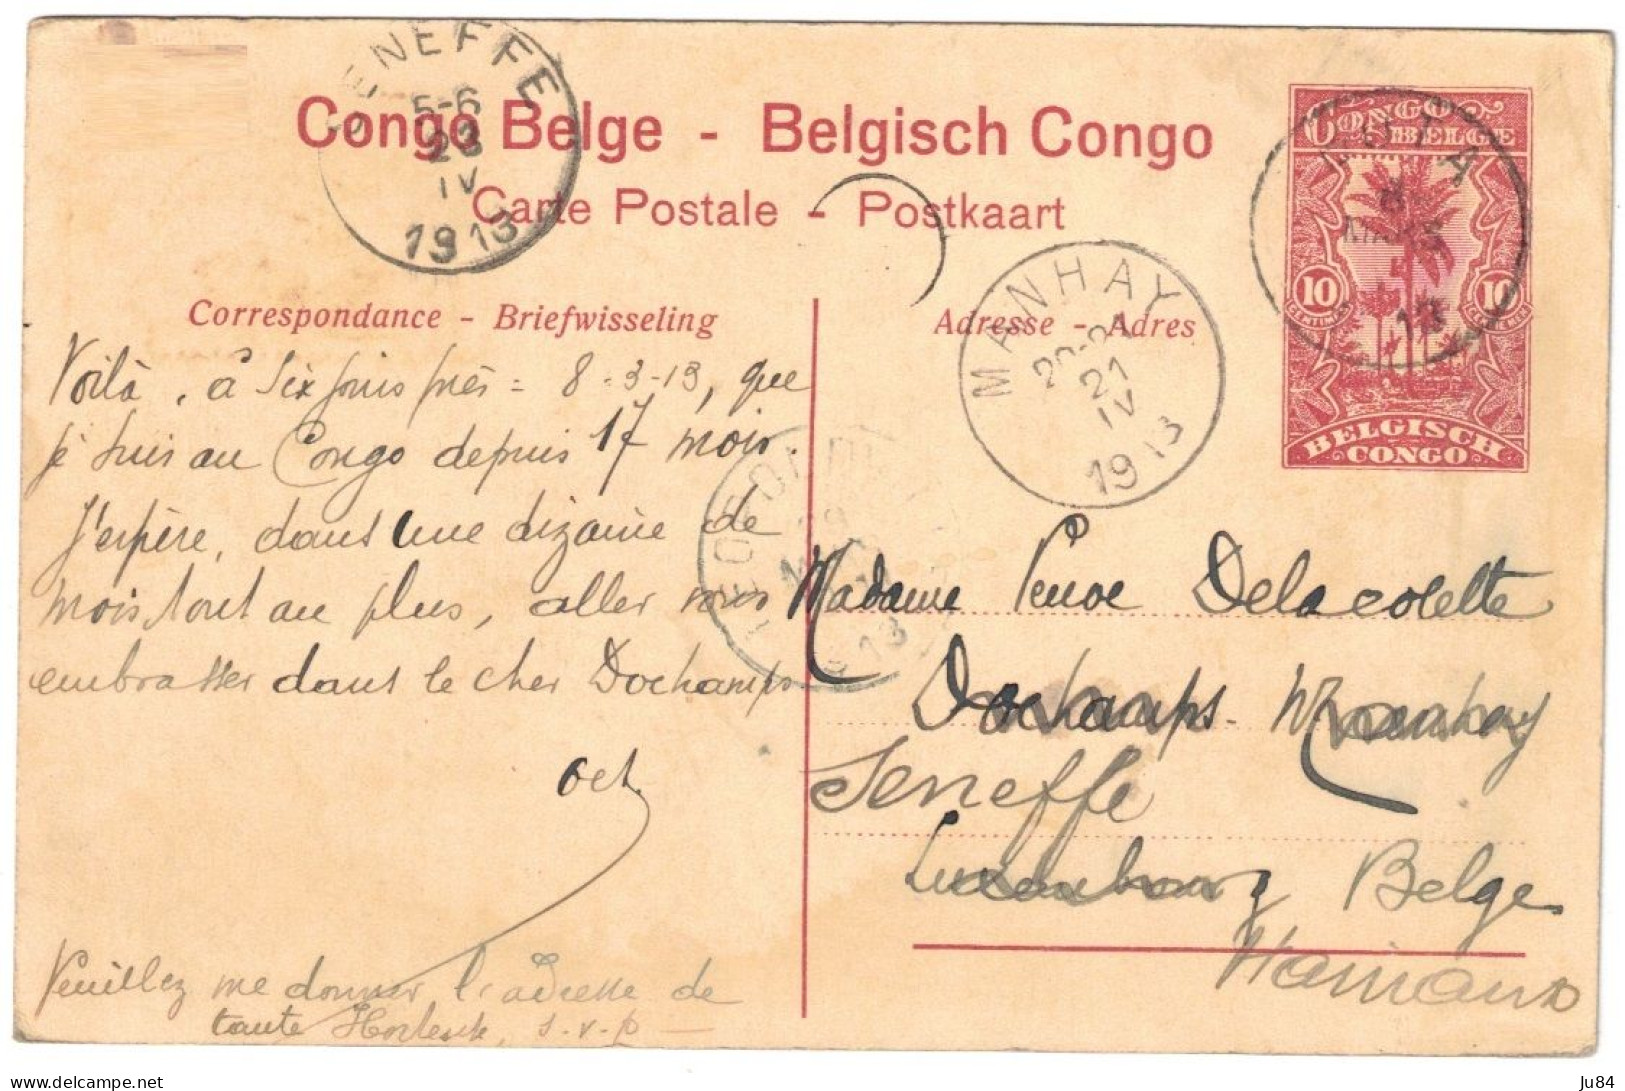 SENEFFE
5-6
23
IV
1913
Congo Belge - Belgisch Congo
Carte Postale - Postkaart
CONGO BELGE
10 10
CENTIMES CENTIEMEN
BELGISCH CONGO
8
MARS
13
MANHAY
20-21
21
IV
1913
Correspondance - Briefwisseling
Adresse - Adres
Voilà, à six jours près = 8-3-13, que
je suis au Congo depuis 17 mois.
J'espère, dans une dizaine de
mois tout au plus, aller vous
embrasser dans le cher Dochamps
Oct.
Veuillez me donner l'adresse de
tante s.v.p
LEOPOLDVILLE
13
Madame Veuve Delacolette
Dochamps - Manhay
Seneffe
Luxembourg Belge
Hainaut
delcampe.net
Ju84